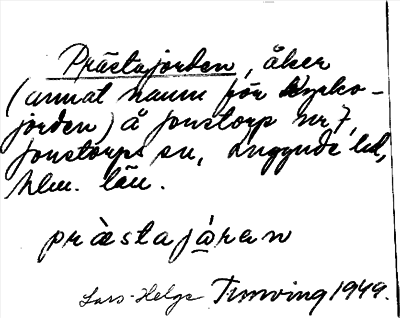 Prästajorden, åker
(annat namn för Kyrko-
jorden) å Jonstorp nr 7,
Jonstorps sn, Luggude hd,
Mlm. län.
præstajåren
Lars-Helge Tunving 1949.